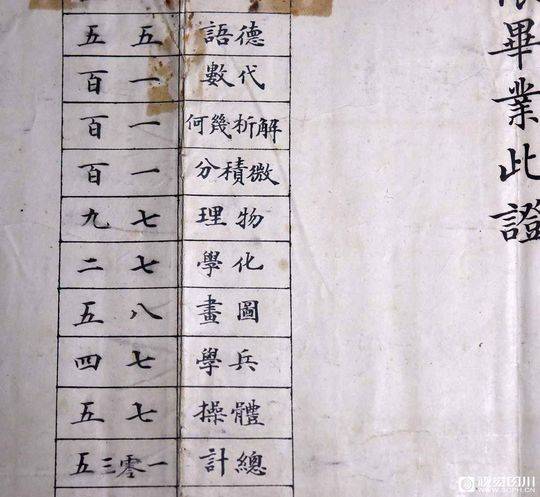 畢業此證
德語 五五
代數 一百
解析幾何 一百
微積分 一百
物理 七九
化學 七二
圖畫 八五
兵學 七四
體操 七五
總計 一零三五
视觉四川